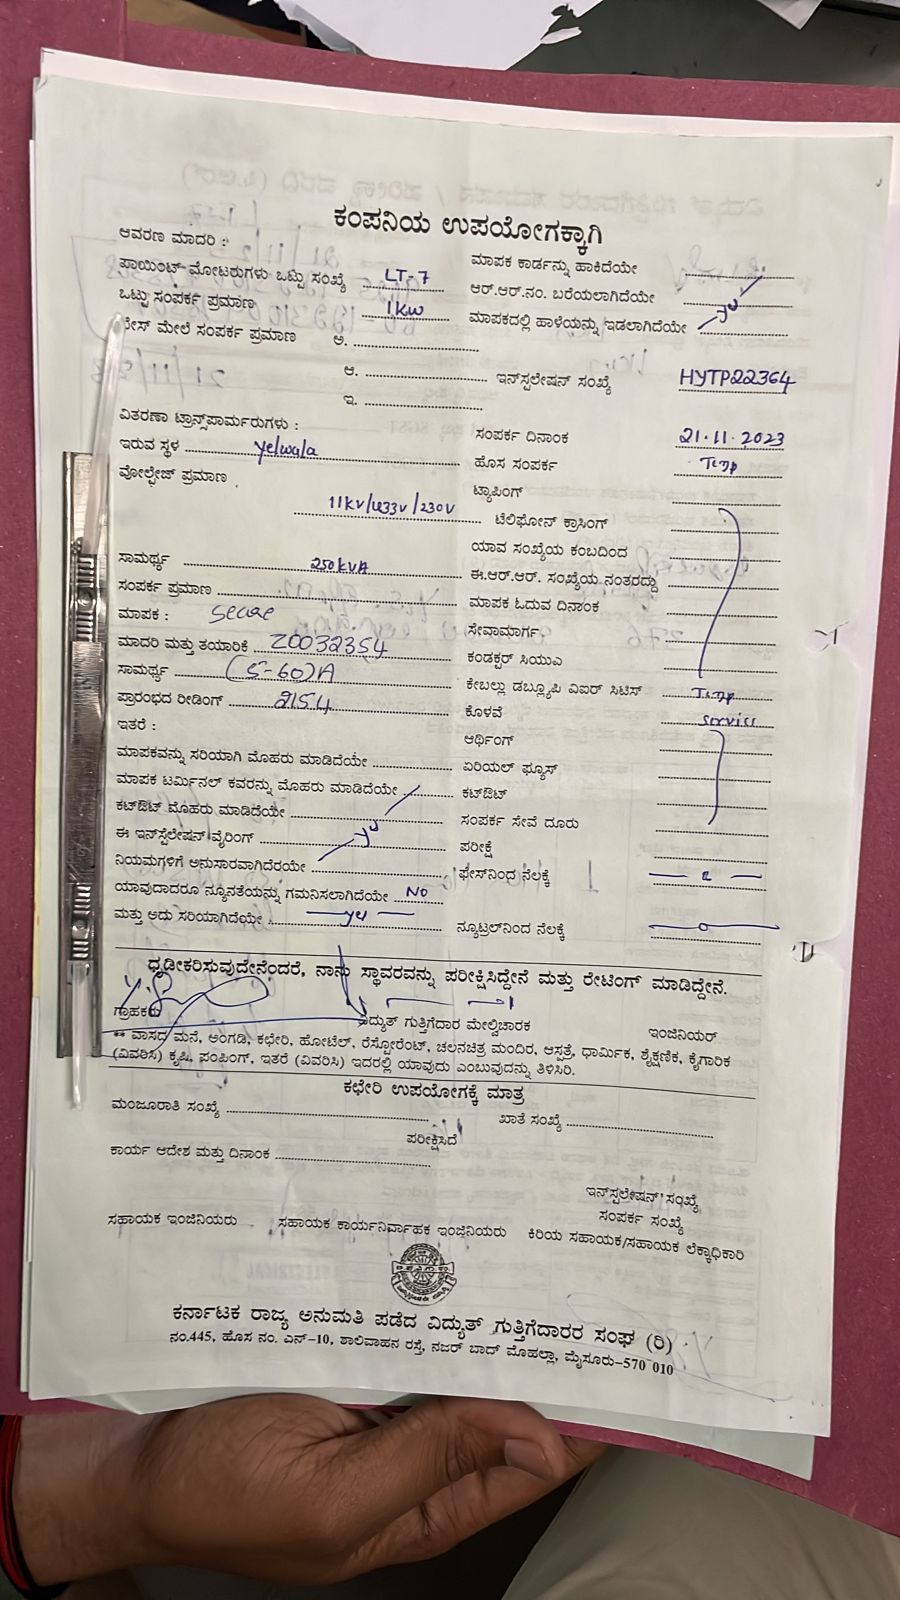 ಕಂಪನಿಯ ಉಪಯೋಗಕ್ಕಾಗಿ
ಆವರಣ ಮಾದರಿ :
ಮಾಪಕ ಕಾರ್ಡನ್ನು ಹಾಕಿದೆಯೇ
ಪಾಯಿಂಟ್-ಮೋಟರುಗಳು ಒಟ್ಟು ಸಂಖ್ಯೆ LT-7
ಆರ್.ಆರ್.ನಂ. ಬರೆಯಲಾಗಿದೆಯೇ
ಒಟ್ಟು ಸಂಪರ್ಕ ಪ್ರಮಾಣ 1kw
ಮಾಪಕದಲ್ಲಿ ಹಾಳೆಯನ್ನು ಇಡಲಾಗಿದೆಯೇ
ಮೇಲೆ ಸಂಪರ್ಕ ಪ್ರಮಾಣ ಅ.
ಆ. ಇನ್‌ಸ್ಟಲೇಷನ್ ಸಂಖ್ಯೆ HYTP22364
ಇ.
ವಿತರಣಾ ಟ್ರಾನ್ಸ್‌ಪಾರ್ಮರುಗಳು :
ಸಂಪರ್ಕ ದಿನಾಂಕ 21.11.2023
ಇರುವ ಸ್ಥಳ yelwala
ಹೊಸ ಸಂಪರ್ಕ Temp
ವೋಲ್ಟೇಜ್ ಪ್ರಮಾಣ
ಟ್ಯಾಪಿಂಗ್
11kv/433v/230v ಟೆಲಿಫೋನ್ ಕ್ರಾಸಿಂಗ್
ಯಾವ ಸಂಖ್ಯೆಯ ಕಂಬದಿಂದ
ಸಾಮರ್ಥ್ಯ 250kVA
ಈ.ಆರ್.ಆರ್. ಸಂಖ್ಯೆಯ ನಂತರದ್ದು
ಸಂಪರ್ಕ ಪ್ರಮಾಣ
ಮಾಪಕ ಓದುವ ದಿನಾಂಕ
ಮಾಪಕ : Secure
ಸೇವಾಮಾರ್ಗ
ಮಾದರಿ ಮತ್ತು ತಯಾರಿಕೆ 20032354
ಕಂಡಕ್ಟರ್ ಸಿಯುಎ
ಸಾಮರ್ಥ್ಯ (5-60)A
ಕೇಬಲ್ಲು ಡಬ್ಲ್ಯೂಪಿ ವಿಐಆರ್ ಸಿಟಿಸ್ Temp
ಪ್ರಾರಂಭದ ರೀಡಿಂಗ್ 2154
ಕೊಳವೆ service
ಇತರೆ :
ಆರ್ಥಿಂಗ್
ಮಾಪಕವನ್ನು ಸರಿಯಾಗಿ ಮೊಹರು ಮಾಡಿದೆಯೇ
ಏರಿಯಲ್ ಫ್ಯೂಸ್
ಮಾಪಕ ಟರ್ಮಿನಲ್ ಕವರನ್ನು ಮೊಹರು ಮಾಡಿದೆಯೇ
ಕಟ್‌ಔಟ್
ಕಟ್‌ಔಟ್ ಮೊಹರು ಮಾಡಿದೆಯೇ
ಸಂಪರ್ಕ ಸೇವೆ ದೂರು
ಈ ಇನ್‌ಸ್ಟಲೇಷನ್ ವೈರಿಂಗ್
ಪರೀಕ್ಷೆ
ನಿಯಮಗಳಿಗೆ ಅನುಸಾರವಾಗಿದೆರಯೇ
ಫೇಸ್‌ನಿಂದ ನೆಲಕ್ಕೆ
ಯಾವುದಾದರೂ ನ್ಯೂನತೆಯನ್ನು ಗಮನಿಸಲಾಗಿದೆಯೇ NO
ಮತ್ತು ಅದು ಸರಿಯಾಗಿದೆಯೇ
ನ್ಯೂಟ್ರಲ್‌ನಿಂದ ನೆಲಕ್ಕೆ
ಧೃಡೀಕರಿಸುವುದೇನೆಂದರೆ, ನಾನು ಸ್ಥಾವರವನ್ನು ಪರೀಕ್ಷಿಸಿದ್ದೇನೆ ಮತ್ತು ರೇಟಿಂಗ್ ಮಾಡಿದ್ದೇನೆ.
ಗ್ರಾಹಕರು ವಿದ್ಯುತ್ ಗುತ್ತಿಗೆದಾರ ಮೇಲ್ವಿಚಾರಕ ಇಂಜಿನಿಯರ್
** ವಾಸದ ಮನೆ, ಅಂಗಡಿ, ಕಛೇರಿ, ಹೋಟೆಲ್, ರೆಸ್ಟೋರೆಂಟ್, ಚಲನಚಿತ್ರ ಮಂದಿರ, ಆಸ್ಪತ್ರೆ, ಧಾರ್ಮಿಕ, ಶೈಕ್ಷಣಿಕ, ಕೈಗಾರಿಕ
(ವಿವರಿಸಿ) ಕೃಷಿ, ಪಂಪಿಂಗ್, ಇತರೆ (ವಿವರಿಸಿ) ಇದರಲ್ಲಿ ಯಾವುದು ಎಂಬುವುದನ್ನು ತಿಳಿಸಿರಿ.
ಕಛೇರಿ ಉಪಯೋಗಕ್ಕೆ ಮಾತ್ರ
ಮಂಜೂರಾತಿ ಸಂಖ್ಯೆ ಖಾತೆ ಸಂಖ್ಯೆ
ಪರೀಕ್ಷಿಸಿದೆ
ಕಾರ್ಯ ಆದೇಶ ಮತ್ತು ದಿನಾಂಕ
ಇನ್‌ಸ್ಟಲೇಷನ್ ಸಂಖ್ಯೆ
ಸಂಪರ್ಕ ಸಂಖ್ಯೆ
ಸಹಾಯಕ ಇಂಜಿನಿಯರು ಸಹಾಯಕ ಕಾರ್ಯನಿರ್ವಾಹಕ ಇಂಜಿನಿಯರು ಕಿರಿಯ ಸಹಾಯಕ/ಸಹಾಯಕ ಲೆಕ್ಕಾಧಿಕಾರಿ
ಕರ್ನಾಟಕ ರಾಜ್ಯ ಅನುಮತಿ ಪಡೆದ ವಿದ್ಯುತ್ ಗುತ್ತಿಗೆದಾರರ ಸಂಘ (ರಿ)
ನಂ.445, ಹೊಸ ನಂ. ಎನ್-10, ಶಾಲಿವಾಹನ ರಸ್ತೆ, ನಜರ್ ಬಾದ್ ಮೊಹಲ್ಲಾ, ಮೈಸೂರು-570 010